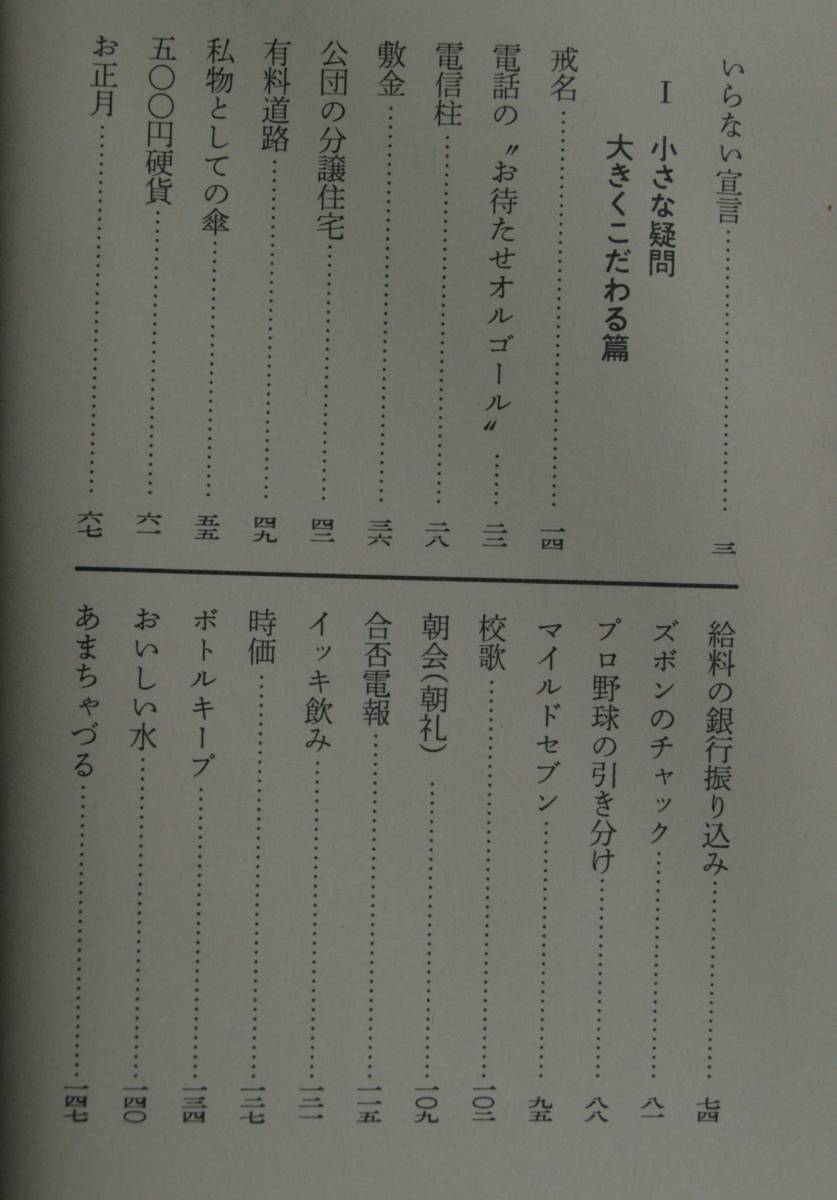 いらない宣言……………………三
I 小さな疑問
大きくこだわる篇
戒名……………………一四
電話の〝お待たせオルゴール〟……二二
電信柱……………………二八
敷金……………………三六
公団の分譲住宅……………………四二
有料道路……………………四九
私物としての傘……………………五五
五〇〇円硬貨……………………六一
お正月……………………六七
給料の銀行振り込み……………………七四
ズボンのチャック……………………八一
プロ野球の引き分け……………………八八
マイルドセブン……………………九五
校歌……………………一〇二
朝会(朝礼)……………………一〇九
合否電報……………………一一五
イッキ飲み……………………一二一
時価……………………一二七
ボトルキープ……………………一三四
おいしい水……………………一四〇
あまちゃづる……………………一四七